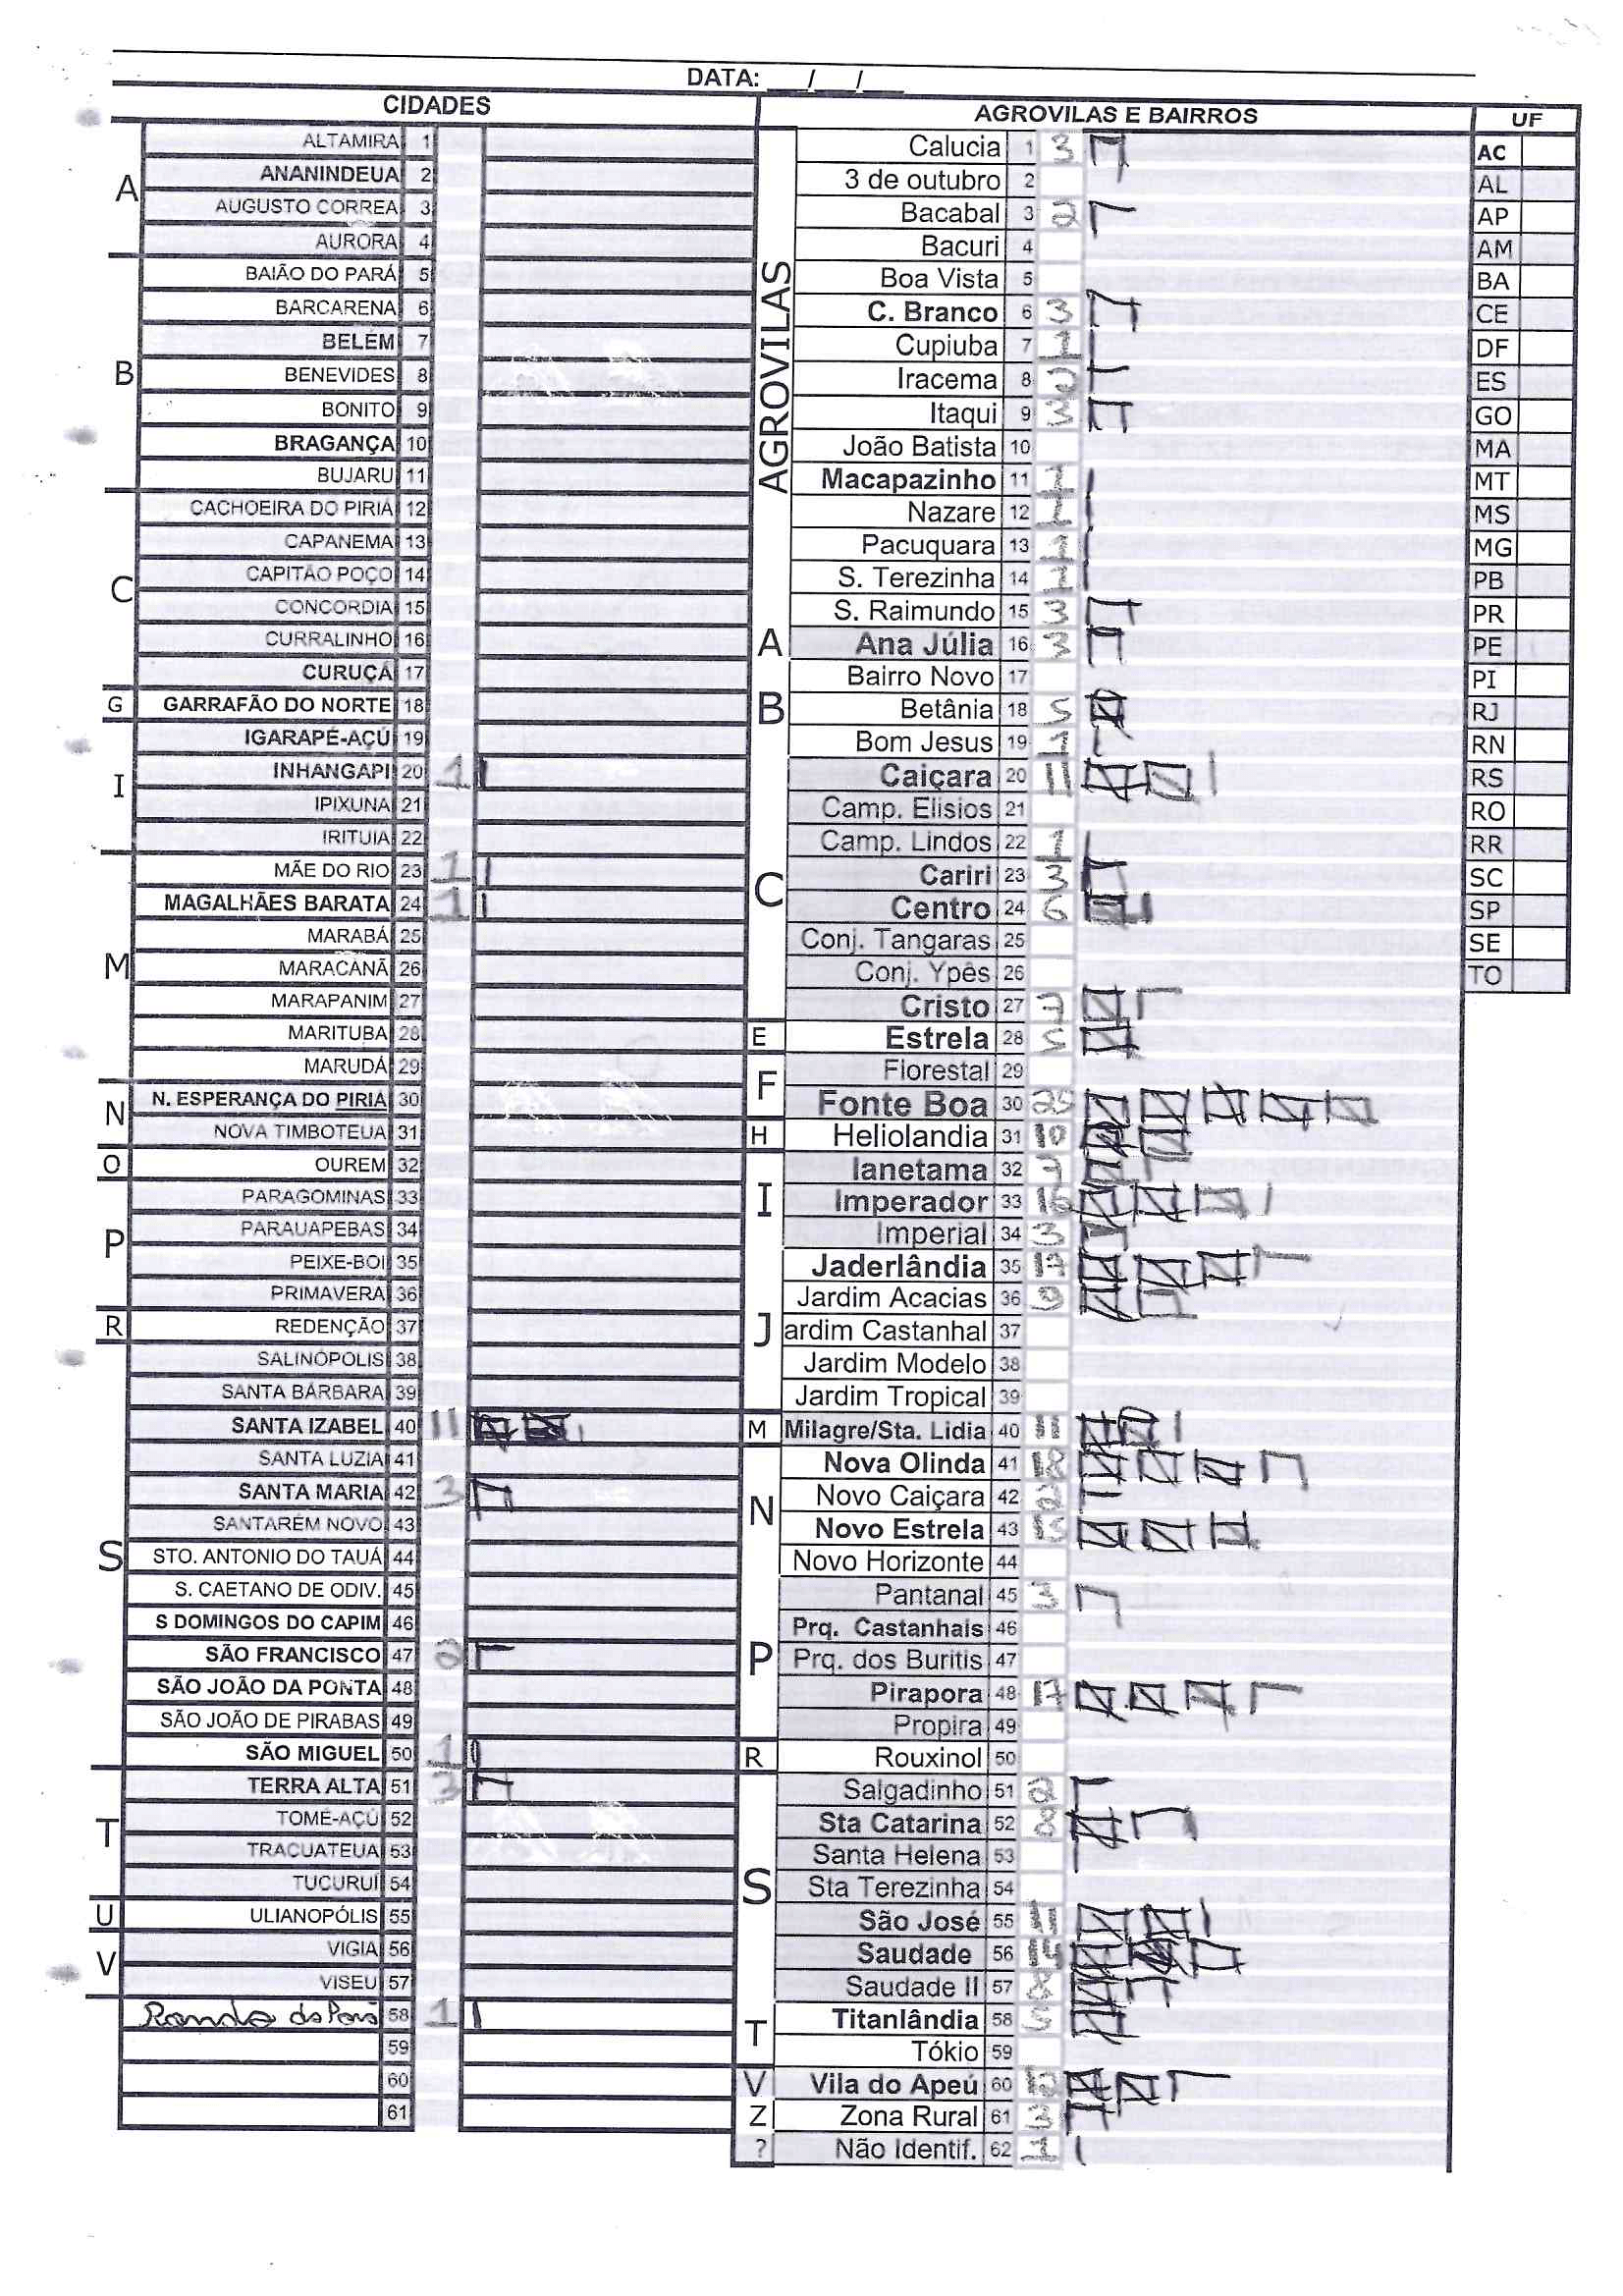 DATA: __/__/__
CIDADES
A
ALTAMIRA 1
ANANINDEUA 2
AUGUSTO CORREA 3
AURORA 4
B
BAIÃO DO PARÁ 5
BARCARENA 6
BELÉM 7
BENEVIDES 8
BONITO 9
BRAGANÇA 10
BUJARU 11
C
CACHOEIRA DO PIRIÁ 12
CAPANEMA 13
CAPITÃO POÇO 14
CONCORDIA 15
CURRALINHO 16
CURUÇÁ 17
G
GARRAFÃO DO NORTE 18
I
IGARAPÉ-AÇÚ 19
INHANGAPI 20 1
IPIXUNA 21
IRITUIA 22
M
MÃE DO RIO 23 1
MAGALHÃES BARATA 24 1
MARABÁ 25
MARACANÃ 26
MARAPANIM 27
MARITUBA 28
MARUDÁ 29
N
N. ESPERANÇA DO PIRIA 30
NOVA TIMBOTEUA 31
O
OUREM 32
P
PARAGOMINAS 33
PARAUAPEBAS 34
PEIXE-BOI 35
PRIMAVERA 36
R
REDENÇÃO 37
S
SALINÓPOLIS 38
SANTA BÁRBARA 39
SANTA IZABEL 40 11
SANTA LUZIA 41
SANTA MARIA 42 3
SANTARÉM NOVO 43
STO. ANTONIO DO TAUÁ 44
S. CAETANO DE ODIV. 45
S DOMINGOS DO CAPIM 46
SÃO FRANCISCO 47 2
SÃO JOÃO DA PONTA 48
SÃO JOÃO DE PIRABAS 49
SÃO MIGUEL 50 1
T
TERRA ALTA 51 3
TOMÉ-AÇÚ 52
TRACUATEUA 53
TUCURUÍ 54
U
ULIANOPÓLIS 55
V
VIGIA 56
VISEU 57
58 1
59
60
61
AGROVILAS E BAIRROS
AGROVILAS
Calucia 1 3
3 de outubro 2
Bacabal 3 2
Bacuri 4
Boa Vista 5
C. Branco 6 3
Cupiuba 7 1
Iracema 8 2
Itaqui 9 3
João Batista 10
Macapazinho 11 1
Nazare 12 1
Pacuquara 13 1
S. Terezinha 14 1
S. Raimundo 15 3
A
Ana Júlia 16 3
B
Bairro Novo 17
Betânia 18 5
Bom Jesus 19 1
C
Caiçara 20 11
Camp. Elisios 21
Camp. Lindos 22 1
Cariri 23 3
Centro 24 6
Conj. Tangaras 25
Conj. Ypês 26
Cristo 27 7
E
Estrela 28 5
F
Florestal 29
Fonte Boa 30 25
H
Heliolandia 31 10
I
Ianetama 32 7
Imperador 33 16
Imperial 34 3
J
Jaderlândia 35 17
Jardim Acacias 36 9
ardim Castanhal 37
Jardim Modelo 38
Jardim Tropical 39
M
Milagre/Sta. Lidia 40 11
N
Nova Olinda 41 18
Novo Caiçara 42 2
Novo Estrela 43 15
Novo Horizonte 44
P
Pantanal 45 3
Prq. Castanhais 46
Prq. dos Buritis 47
Pirapora 48 17
Propira 49
R
Rouxinol 50
S
Salgadinho 51 2
Sta Catarina 52 8
Santa Helena 53
Sta Terezinha 54
São José 55 11
Saudade 56
Saudade II 57 8
T
Titanlândia 58 5
Tókio 59
V
Vila do Apeú 60 12
Z
Zona Rural 61 3
?
Não Identif. 62 1
UF
AC
AL
AP
AM
BA
CE
DF
ES
GO
MA
MT
MS
MG
PB
PR
PE
PI
RJ
RN
RS
RO
RR
SC
SP
SE
TO